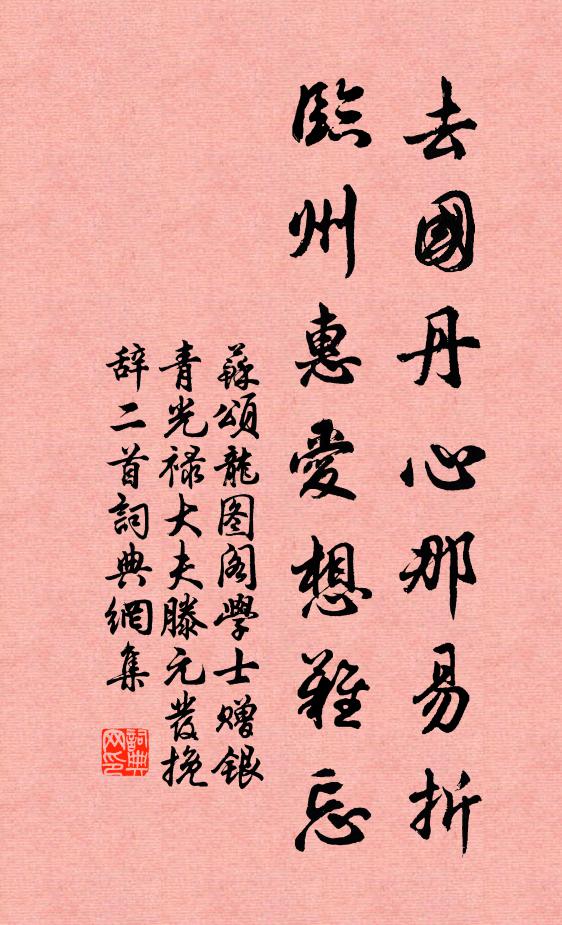 去國丹心那易折
臨州惠愛想難忘
蘇頌龍图阁學士赠銀
青光禄大夫滕元發挽
辞二首詞典網集
詞典网印